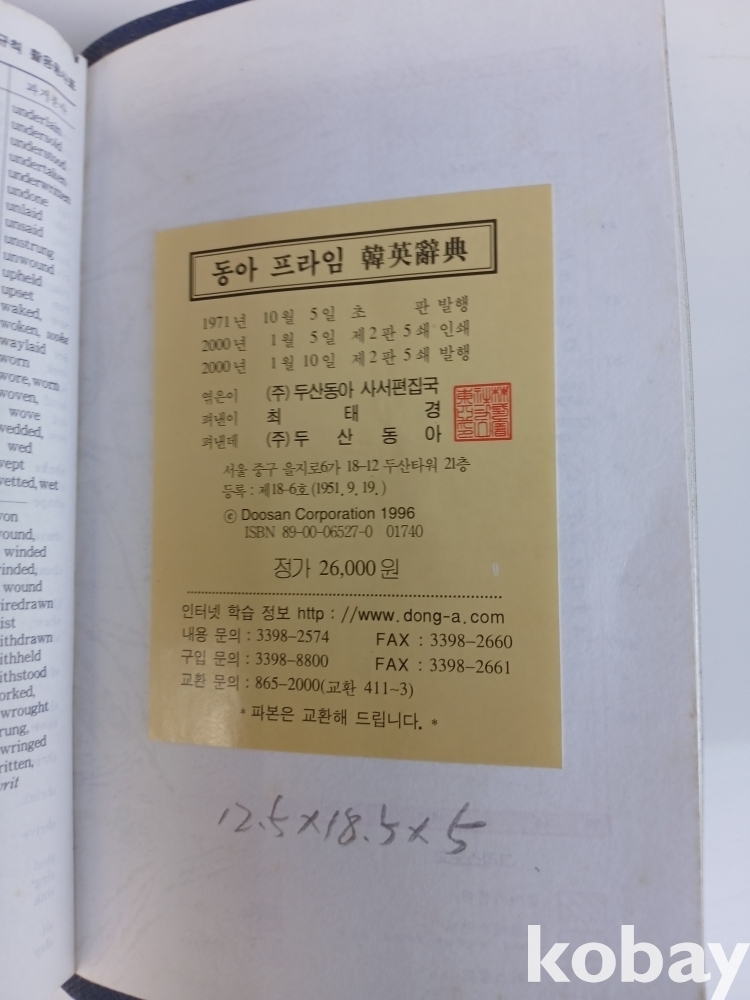 과거분사
underlain
undersold
understood
undertaken
underwritten
undone
unlaid
unsaid
unstrung
unwound
upheld
upset
waked,
woken, woke
waylaid
worn
wore, worn
woven,
wove
wedded,
wed
wept
wetted, wet
won
wound,
winded
winded,
wound
wiredrawn
wist
withdrawn
withheld
withstood
worked,
wrought
wrung,
wringed
written,
writ
동아 프라임 韓英辭典
1971년 10월 5일 초 판 발행
2000년 1월 5일 제2판 5쇄 인쇄
2000년 1월 10일 제2판 5쇄 발행
엮은이 (주)두산동아 사서편집국
펴낸이 최 태 경
펴낸데 (주)두 산 동 아
서울 중구 을지로6가 18-12 두산타워 21층
등록 : 제18-6호(1951. 9. 19.)
ⓒ Doosan Corporation 1996
ISBN 89-00-06527-0 01740
정가 26,000원
인터넷 학습 정보 http : //www.dong-a.com
내용 문의 : 3398-2574 FAX : 3398-2660
구입 문의 : 3398-8800 FAX : 3398-2661
교환 문의 : 865-2000(교환 411~3)
* 파본은 교환해 드립니다. *
12.5×18.5×5
kobay